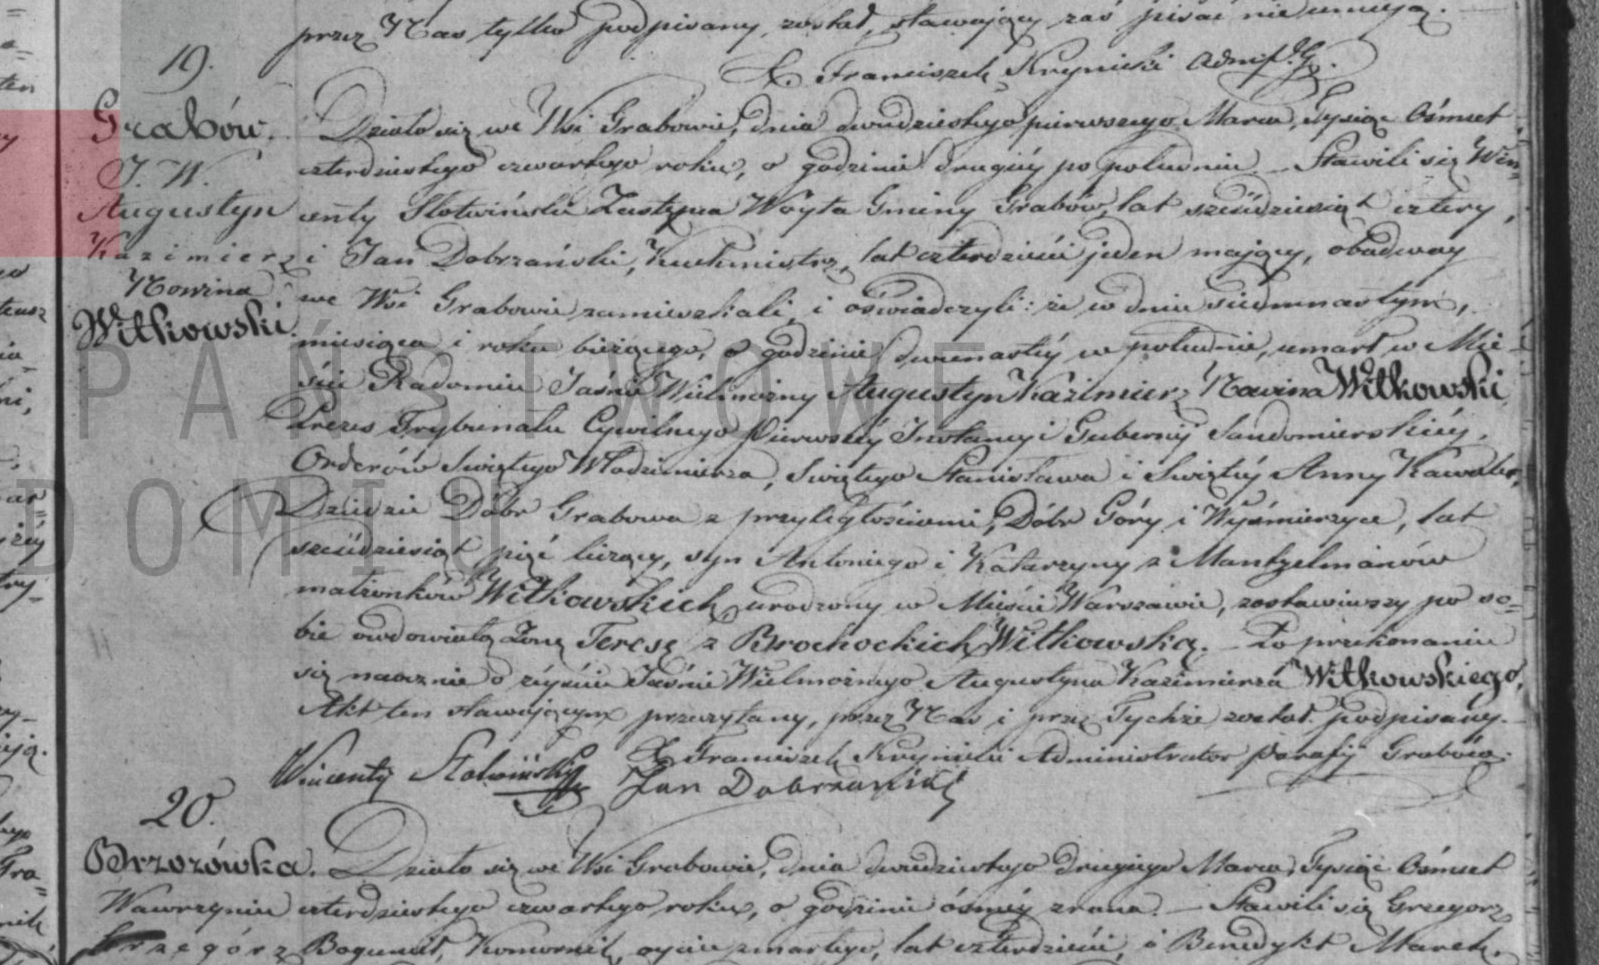 przez Nas tylko podpisany został, stawający zaś pisać nie umieją.
19.
X. Franciszek Krynicki Adm. P. G.
Grabów.
J. W.
Augustyn
Kazimierz
Nowina
Witkowski.
Działo się we Wsi Grabowie, dnia dwudziestego pierwszego Marca, Tysiąc Ośmset
czterdziestego czwartego roku, o godzinie drugiéy po południu — Stawili się Win-
centy Słotwiński Zastępca Wóyta Gminy Grabów, lat sześćdziesiąt cztery,
i Jan Dobrzański, Kuchmistrz, lat czterdzieści jeden mający, obadway
we Wsi Grabowie zamieszkali, i oświadczyli: że w dniu siedmnastym,
miesiąca i roku bieżącego, o godzinie dwunastéy w południe, umarł w Mie-
ście Radomiu Jaśnie Wielmożny Augustyn Kazimierz Nowina Witkowski
Prezes Trybunału Cywilnego Pierwszéy Instancyi Gubernij Sandomierskiéy,
Orderów Swiętego Włodzimierza, Swiętego Stanisława i Swiętéy Anny Kawaler,
Dziedzic Dóbr Grabowa z przyległościami, Dóbr Góry i Wyśmierzyce, lat
sześćdziesiąt pięć liczący, syn Antoniego i Katarzyny z Mantzelmanów
małżonków Witkowskich, urodzony w Mieście Warszawie, zostawiwszy po so-
bie owdowiałą Żonę Teresę z Brochockich Witkowską. — Po przekonaniu
się naocznie o zejściu Jaśnie Wielmożnego Augustyna Kazimierza Witkowskiego,
Akt ten stawającym przeczytany, przez Nas i przez Tychże został podpisany.
X. Franciszek Krynicki Administrator Parafij Grabowa.
Wincenty Słotwiński Jan Dobrzański
20.
Brzozówka.
Wawrzyniec
Grzegórz
Działo się we Wsi Grabowie, dnia dwudziestego drugiego Marca, Tysiąc Ośmset
czterdziestego czwartego roku, o godzinie ósméy zrana. — Stawili się Grzegorz
Bogumił, Komornik, oyciec zmarłego, lat czterdzieści, i Benedykt Marek,
PAŃSTWOWE
DOMIU